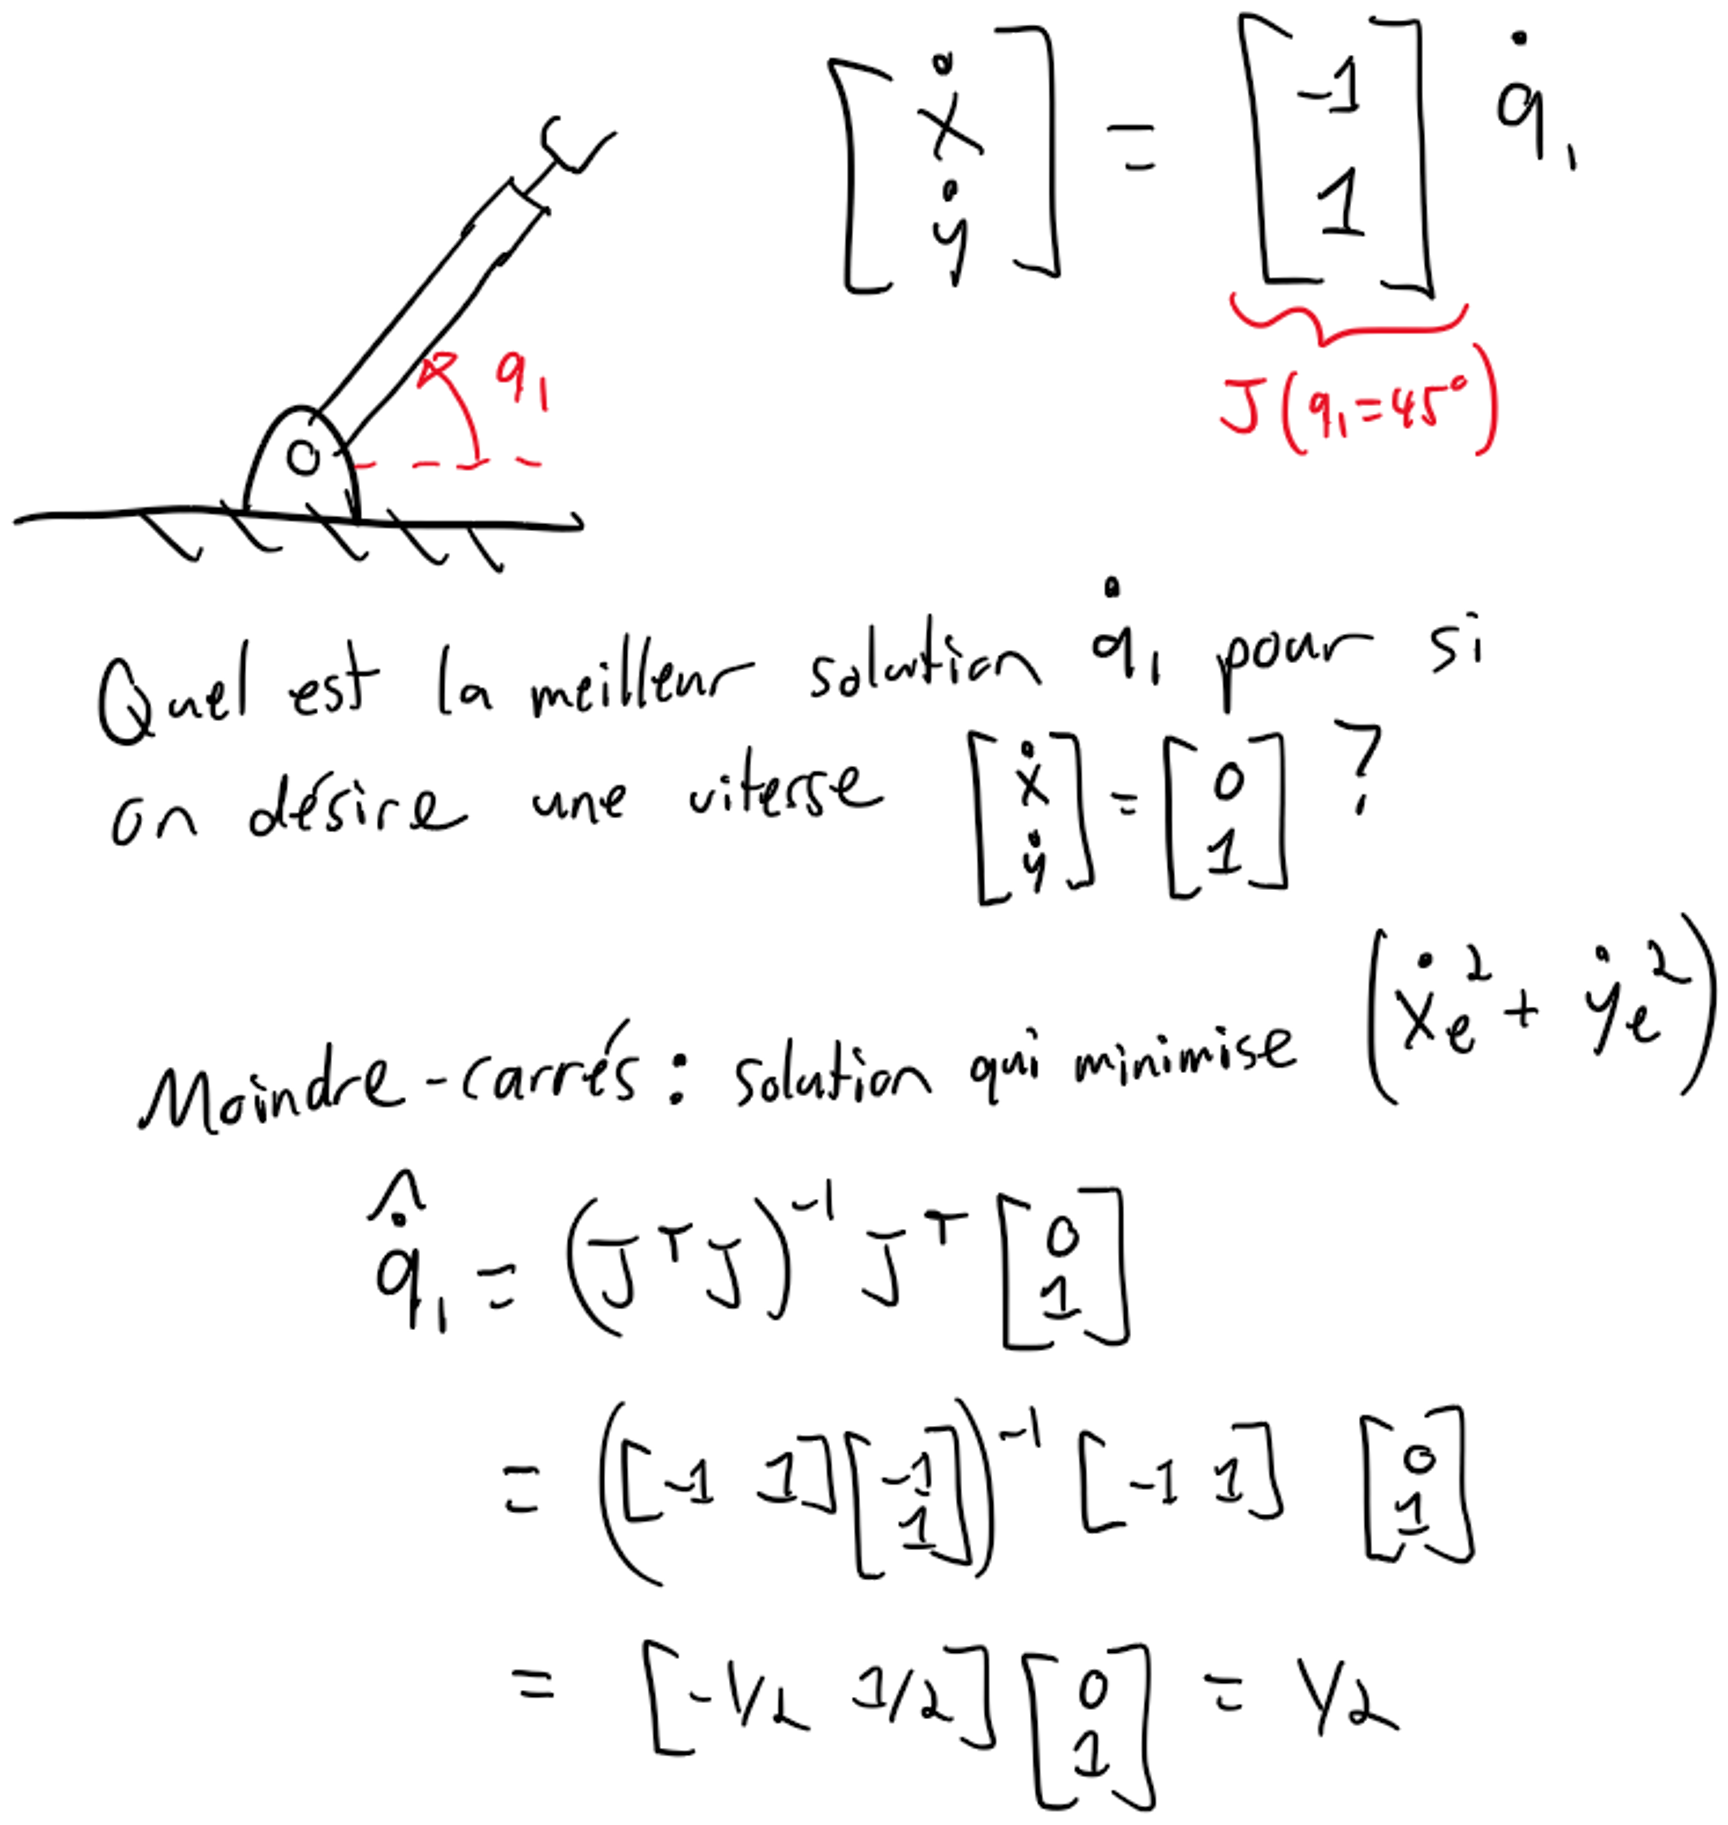 [ẋ ẏ] = [-1 1] q̇₁
q₁
J(q₁=45°)
Quel est la meilleur solution q̇₁ pour si
on désire une vitesse [ẋ ẏ] = [0 1] ?
Moindre-carrés : solution qui minimise (ẋₑ² + ẏₑ²)
q̇̂₁ = (JᵀJ)⁻¹ Jᵀ [0 1]
= ([-1 1][-1 1])⁻¹ [-1 1] [0 1]
= [-1/2 1/2] [0 1] = 1/2